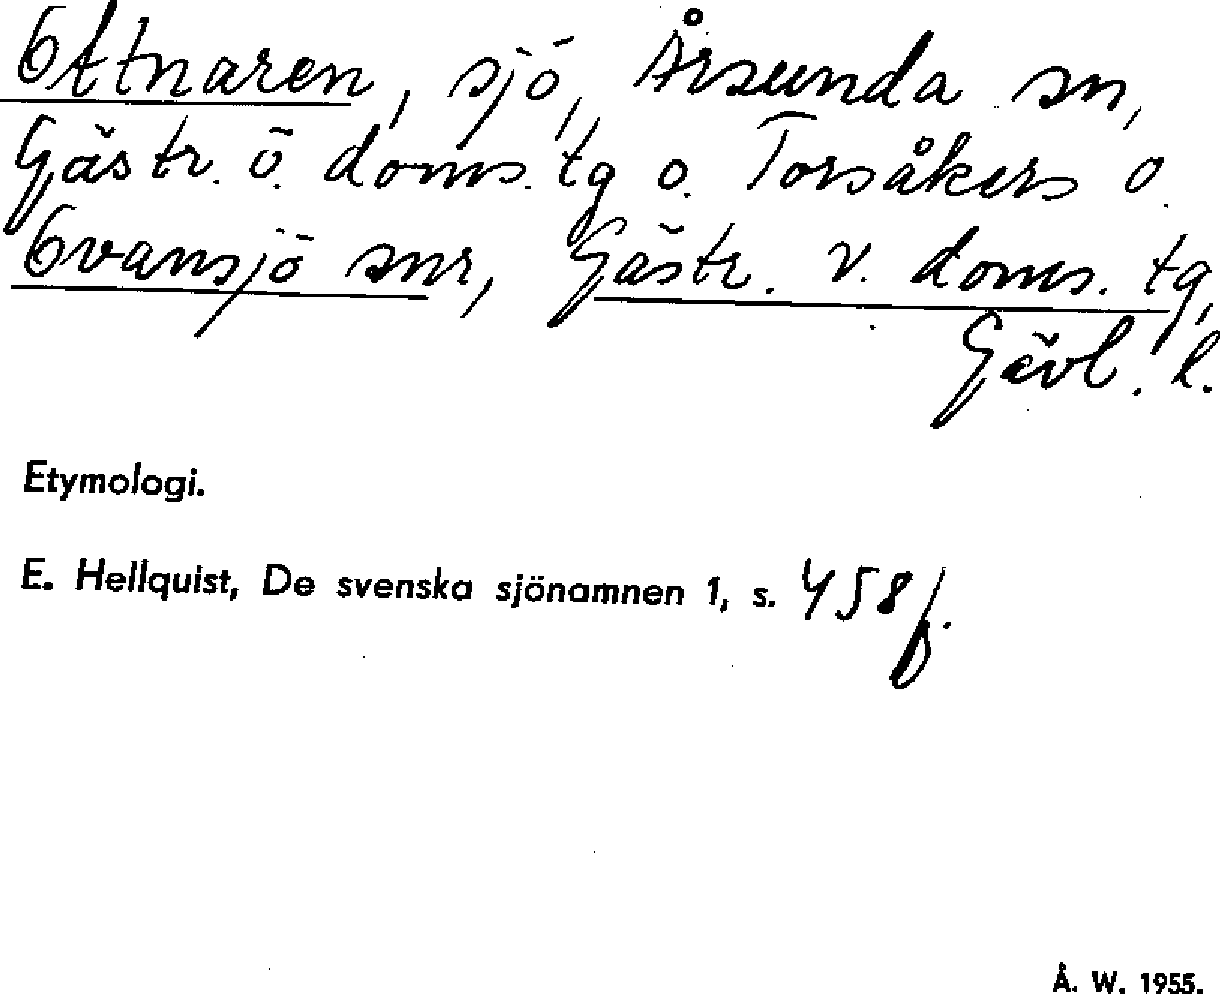 Ottnaren, sjö, Årsunda sn,
Gästr. ö. doms. tg o. Torsåkers o.
Ovansjö snr, Gästr. v. doms. tg,
Gävl. l.
Etymologi.
E. Hellquist, De svenska sjönamnen 1, s. 458 f.
Å. W. 1955.